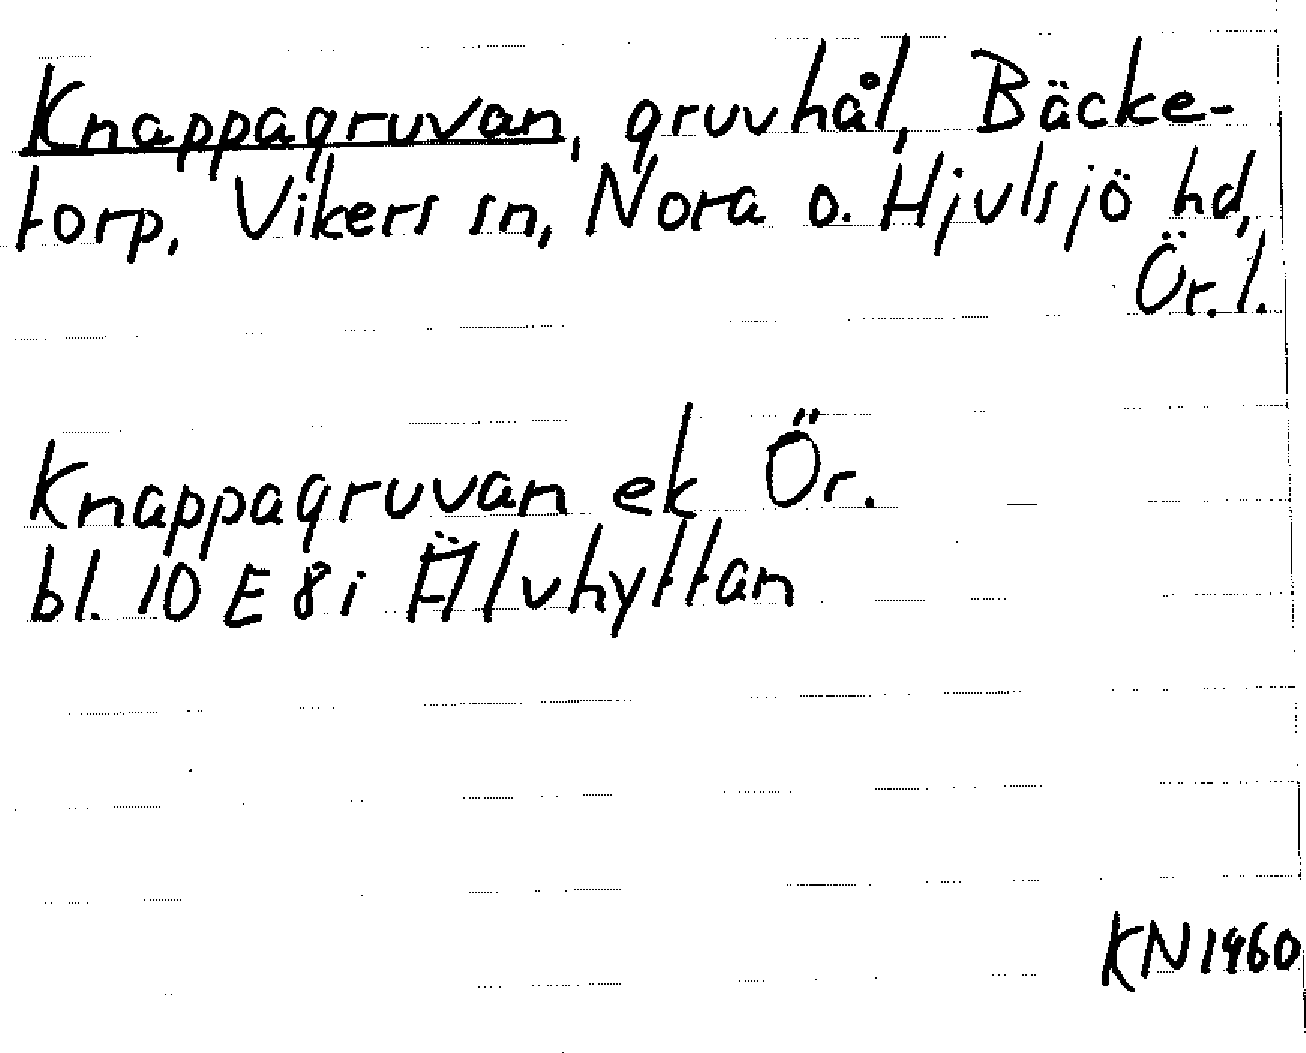 Knappagruvan, gruvhål, Bäcke-
torp, Vikers sn, Nora o. Hjulsjö hd,
Ör. l.
Knappagruvan ek Ör.
bl. 10 E 8 i Älvhyttan
KN 1960